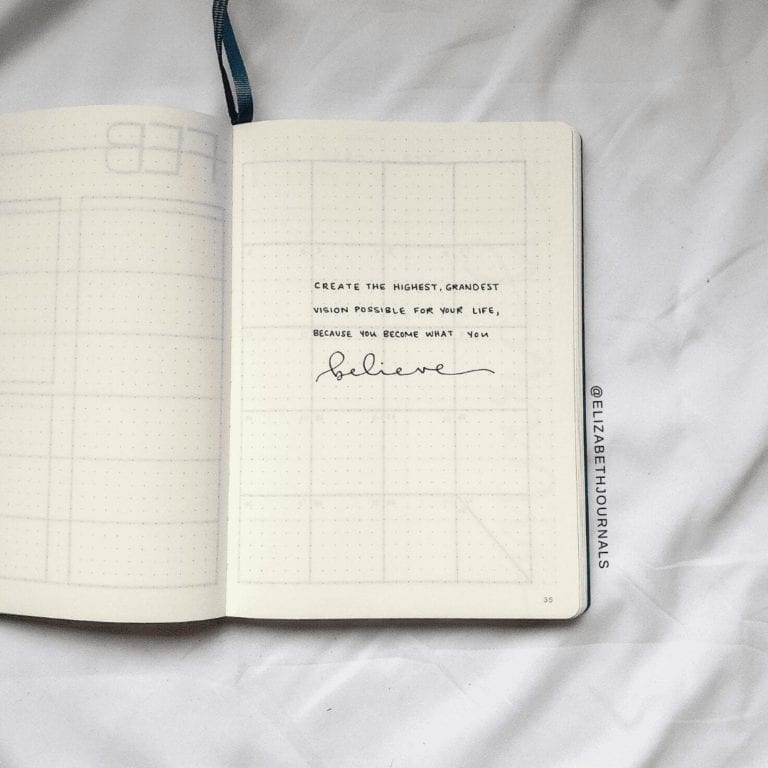 FEB
CREATE THE HIGHEST, GRANDEST
VISION POSSIBLE FOR YOUR LIFE,
BECAUSE YOU BECOME WHAT YOU
believe
35
@ELIZABETHJOURNALS